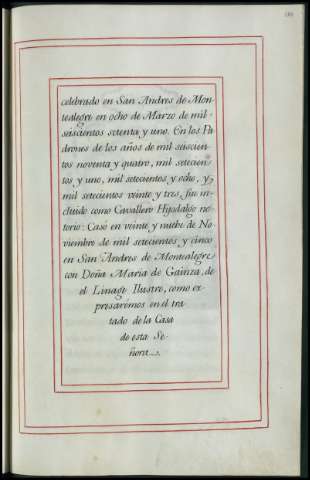 celebrado en San Andres de Mon-
tealegre en ocho de Marzo de mil
seiscientos setenta y uno. En los Pa-
drones de los años de mil seiscien-
tos noventa y quatro, mil setecien-
tos y uno, mil setecientos y ocho, y
mil setecientos veinte y tres, fue in-
cluido como Cavallero Hijodalgo no-
torio: Casó en veinte y nueve de No-
viembre de mil setecientos y cinco
en San Andres de Montealegre
con Doña Maria de Gainza, de
el Linage Ilustre, como ex-
presarémos en el tra-
tado de la Casa
de esta Se-
ñora